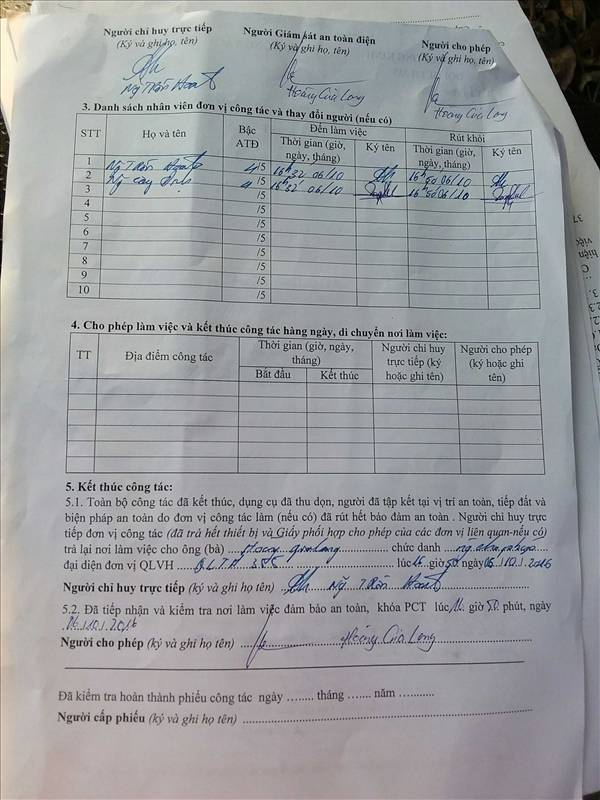 Người chỉ huy trực tiếp Người Giám sát an toàn điện Người cho phép
(Ký và ghi họ, tên) (Ký và ghi họ, tên) (Ký và ghi họ, tên)
Hoàng Cửu Long Hoàng Cửu Long
3. Danh sách nhân viên đơn vị công tác và thay đổi người (nếu có)
STT Họ và tên Bậc ATĐ Đến làm việc Rút khỏi
Thời gian (giờ, ngày, tháng) Ký tên Thời gian (giờ, ngày, tháng) Ký tên
1 4/5 16h32 06/10 16h50 06/10
2 4/5 16h32 06/10 16h50 06/10
3 /5
4 /5
5 /5
6 /5
7 /5
8 /5
9 /5
10 /5
4. Cho phép làm việc và kết thúc công tác hàng ngày, di chuyển nơi làm việc:
TT Địa điểm công tác Thời gian (giờ, ngày, tháng) Người chỉ huy trực tiếp (ký hoặc ghi tên) Người cho phép (ký hoặc ghi tên)
Bắt đầu Kết thúc
5. Kết thúc công tác:
5.1. Toàn bộ công tác đã kết thúc, dụng cụ đã thu dọn, người đã tập kết tại vị trí an toàn, tiếp đất và
biện pháp an toàn do đơn vị công tác làm (nếu có) đã rút hết bảo đảm an toàn . Người chỉ huy trực
tiếp đơn vị công tác (đã trả hết thiết bị và Giấy phối hợp cho phép của các đơn vị liên quan-nếu có)
trả lại nơi làm việc cho ông (bà) .... chức danh ....
đại diện đơn vị QLVH .... lúc 16 giờ 50 ngày 06/10/2016
Người chỉ huy trực tiếp (ký và ghi họ tên) ....
5.2. Đã tiếp nhận và kiểm tra nơi làm việc đảm bảo an toàn, khóa PCT lúc 16 giờ 50 phút, ngày
/10/2016
Người cho phép (ký và ghi họ tên) .... Hoàng Cửu Long
Đã kiểm tra hoàn thành phiếu công tác ngày ........ tháng ....... năm ..........
Người cấp phiếu (ký và ghi họ tên) ....